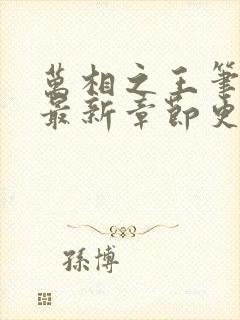 萬相之王筆
最新章節史
孫博